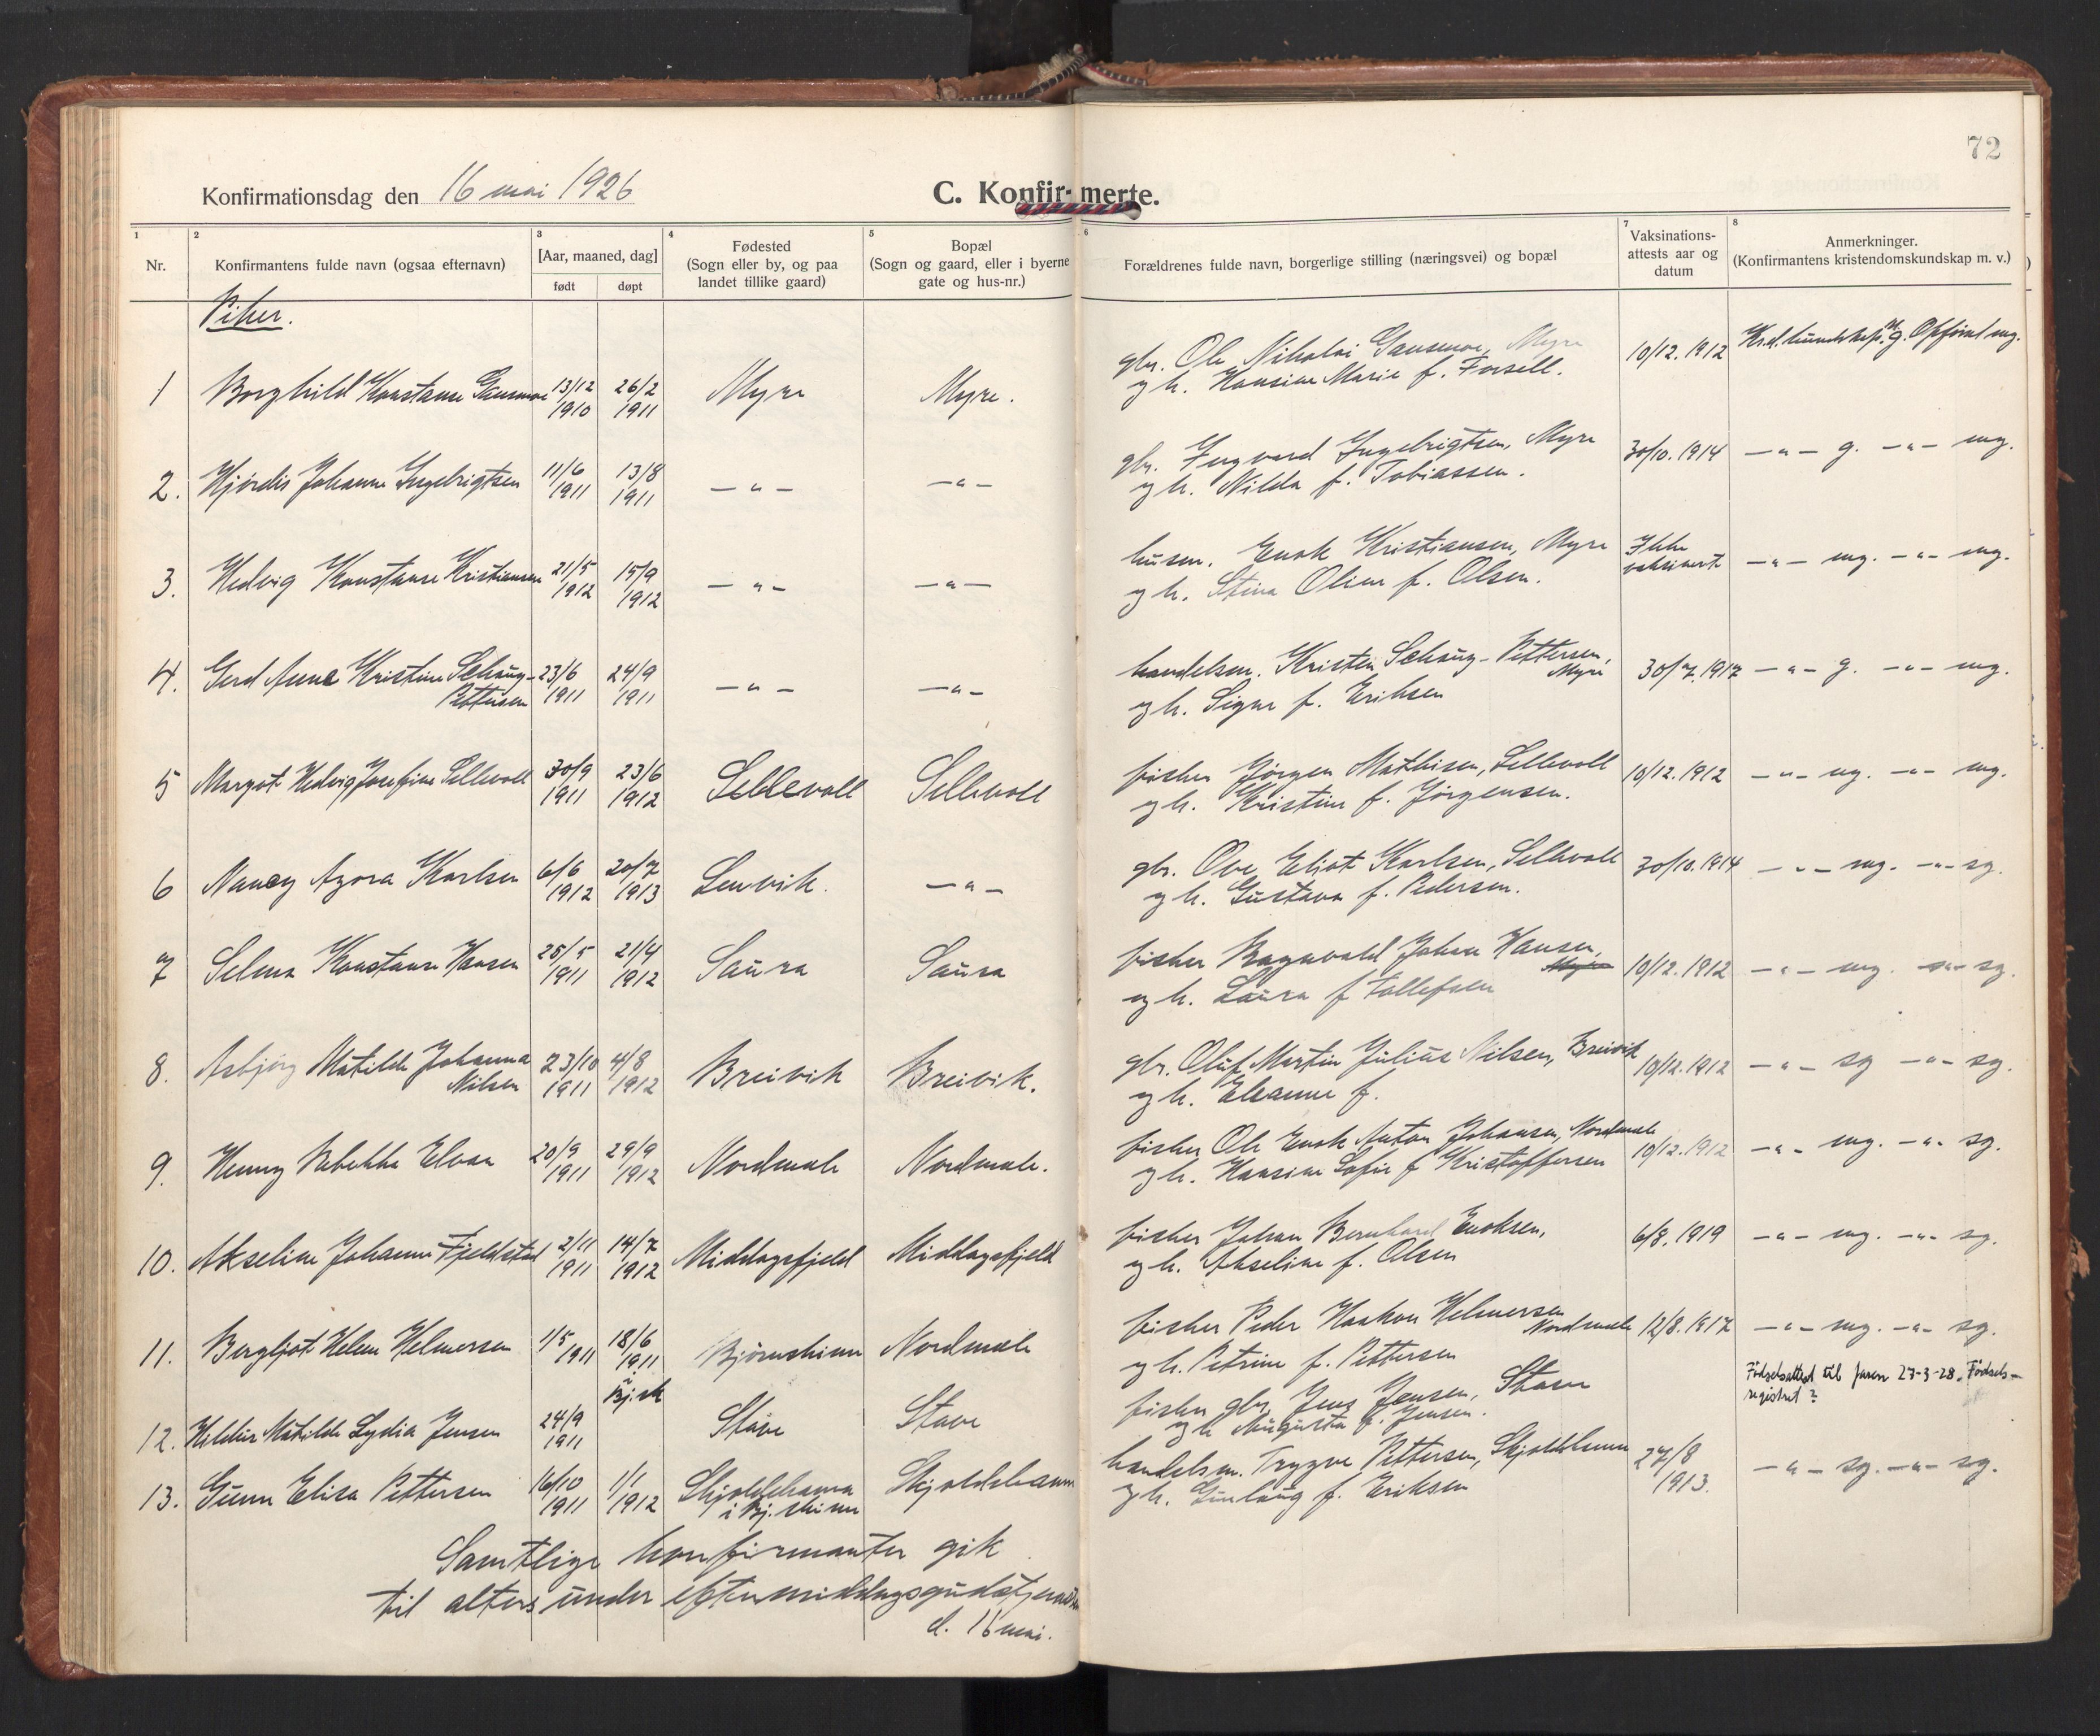 72
Konfirmationsdag den 16 mai 1926
C. Konfirmerte.
1 2 3 4 5 6 7 8
Nr. Konfirmantens fulde navn (ogsaa efternavn) [Aar, maaned, dag] født døpt Fødested (Sogn eller by, og paa landet tillike gaard) Bopæl (Sogn og gaard, eller i byerne gate og hus-nr.) Forældrenes fulde navn, borgerlige stilling (næringsvei) og bopæl Vaksinations-attests aar og datum Anmerkninger. (Konfirmantens kristendomskundskap m. v.)
Piker.
1 Borghild Konstanse Gausmoe 13/12 1910 26/2 1911 Myre Myre. gbr. Ole Nikolai Gausmoe, Myre
og h. Hansine Marie f. Forsell. 10/12.1912 Krd. kundskap. mg. Opførsel mg.
2. Hjørdis Johanne Ingebrigtsen 11/6 1911 13/8 1911 — " — — " — gbr. Ingvard Ingebrigtsen, Myre
og h. Nilda f. Tobiassen. 30/10.1914 — " — g. — " — mg.
3. Hedvig Konstanse Kristiansen 21/5 1912 15/9 1912 — " — — " — husm. Enok Kristiansen, Myre
og h. Stina Oline f. Olsen. Ikke vaksinert — " — mg. — " — mg.
4. Gerd Anna Kristine Schaug-Pettersen 23/6 1911 24/9 1911 — " — — " — handelsm. Kristen Schaug-Pettersen, Myre
og h. Signe f. Eriksen 30/7.1917 — " — g. — " — mg.
5 Margot Hedvig Josefine Sellevoll 30/9 1911 23/6 1912 Sellevoll Sellevoll fisker Jørgen Mathisen, Sellevoll
og h. Kristine f. Jørgensen. 10/12.1912 — " — mg. — " — mg.
6 Nancy Agora Karlsen 6/6 1912 20/7 1913 Lenvik. — " — gbr. Ove Eliot Karlsen, Sellevoll
og h. Gustava f. Pedersen. 30/10.1914 — " — mg. — " — sg.
7 Selma Konstanse Hansen 25/5 1911 21/4 1912 Saura Saura fisker Ragnvald Johan Hansen, Myre
og h. Laura f Tollefsen 10/12.1912 — " — mg. — " — sg.
8. Asbjørg Matilde Johanna Nilsen 23/10 1911 4/8 1912 Breivik Breivik. gbr. Oluf Martin Julius Nilsen, Breivik
og h. Eleanne f. 10/12.1912 — " — sg — " — sg.
9. Henny Rebekka Elvan 20/9 1911 29/9 1912 Nordmele Nordmele. fisker Ole Enok Anton Johansen, Nordmele
og h. Hansine Sofie f Kristoffersen 10/12.1912 — " — mg. — " — sg.
10. Akseline Johanne Fjeldstad 2/11 1911 14/7 1912 Middagsfjeld Middagsfjeld fisker Johan Bernhard Enoksen,
og h. Akseline f. Olsen 6/8.1919 — " — mg. — " — sg.
11. Bergljot Helene Helmersen 1/5 1911 18/6 1911 i Bj.sk Bjørnskinn Nordmele fisker Peder Haakon Helmersen Nordmele
og h. Petrine f. Pettersen 12/8.1917 — " — mg. — " — sg.
12. Hildur Matilde Lydia Jensen 24/9 1911 Stave Stave fisker gbr. Jens Jensen, Stave
og h Augusta f. Jensen. Fødselsattest til faren 27-3-28. Fødsels-
registret?
13. Gunn Elisa Pettersen 16/10 1911 1/1 1912 Skjoldehamn i Bj.skinn Skjoldehamn handelsm. Trygve Pettersen, Skjoldehamn
og h. Gunlaug f. Eriksen 27/8 1913. — " — sg. — " — sg.
Samtlige konfirmanter gik
til alters under eftermiddagsgudstjenesten
d. 16 mai.